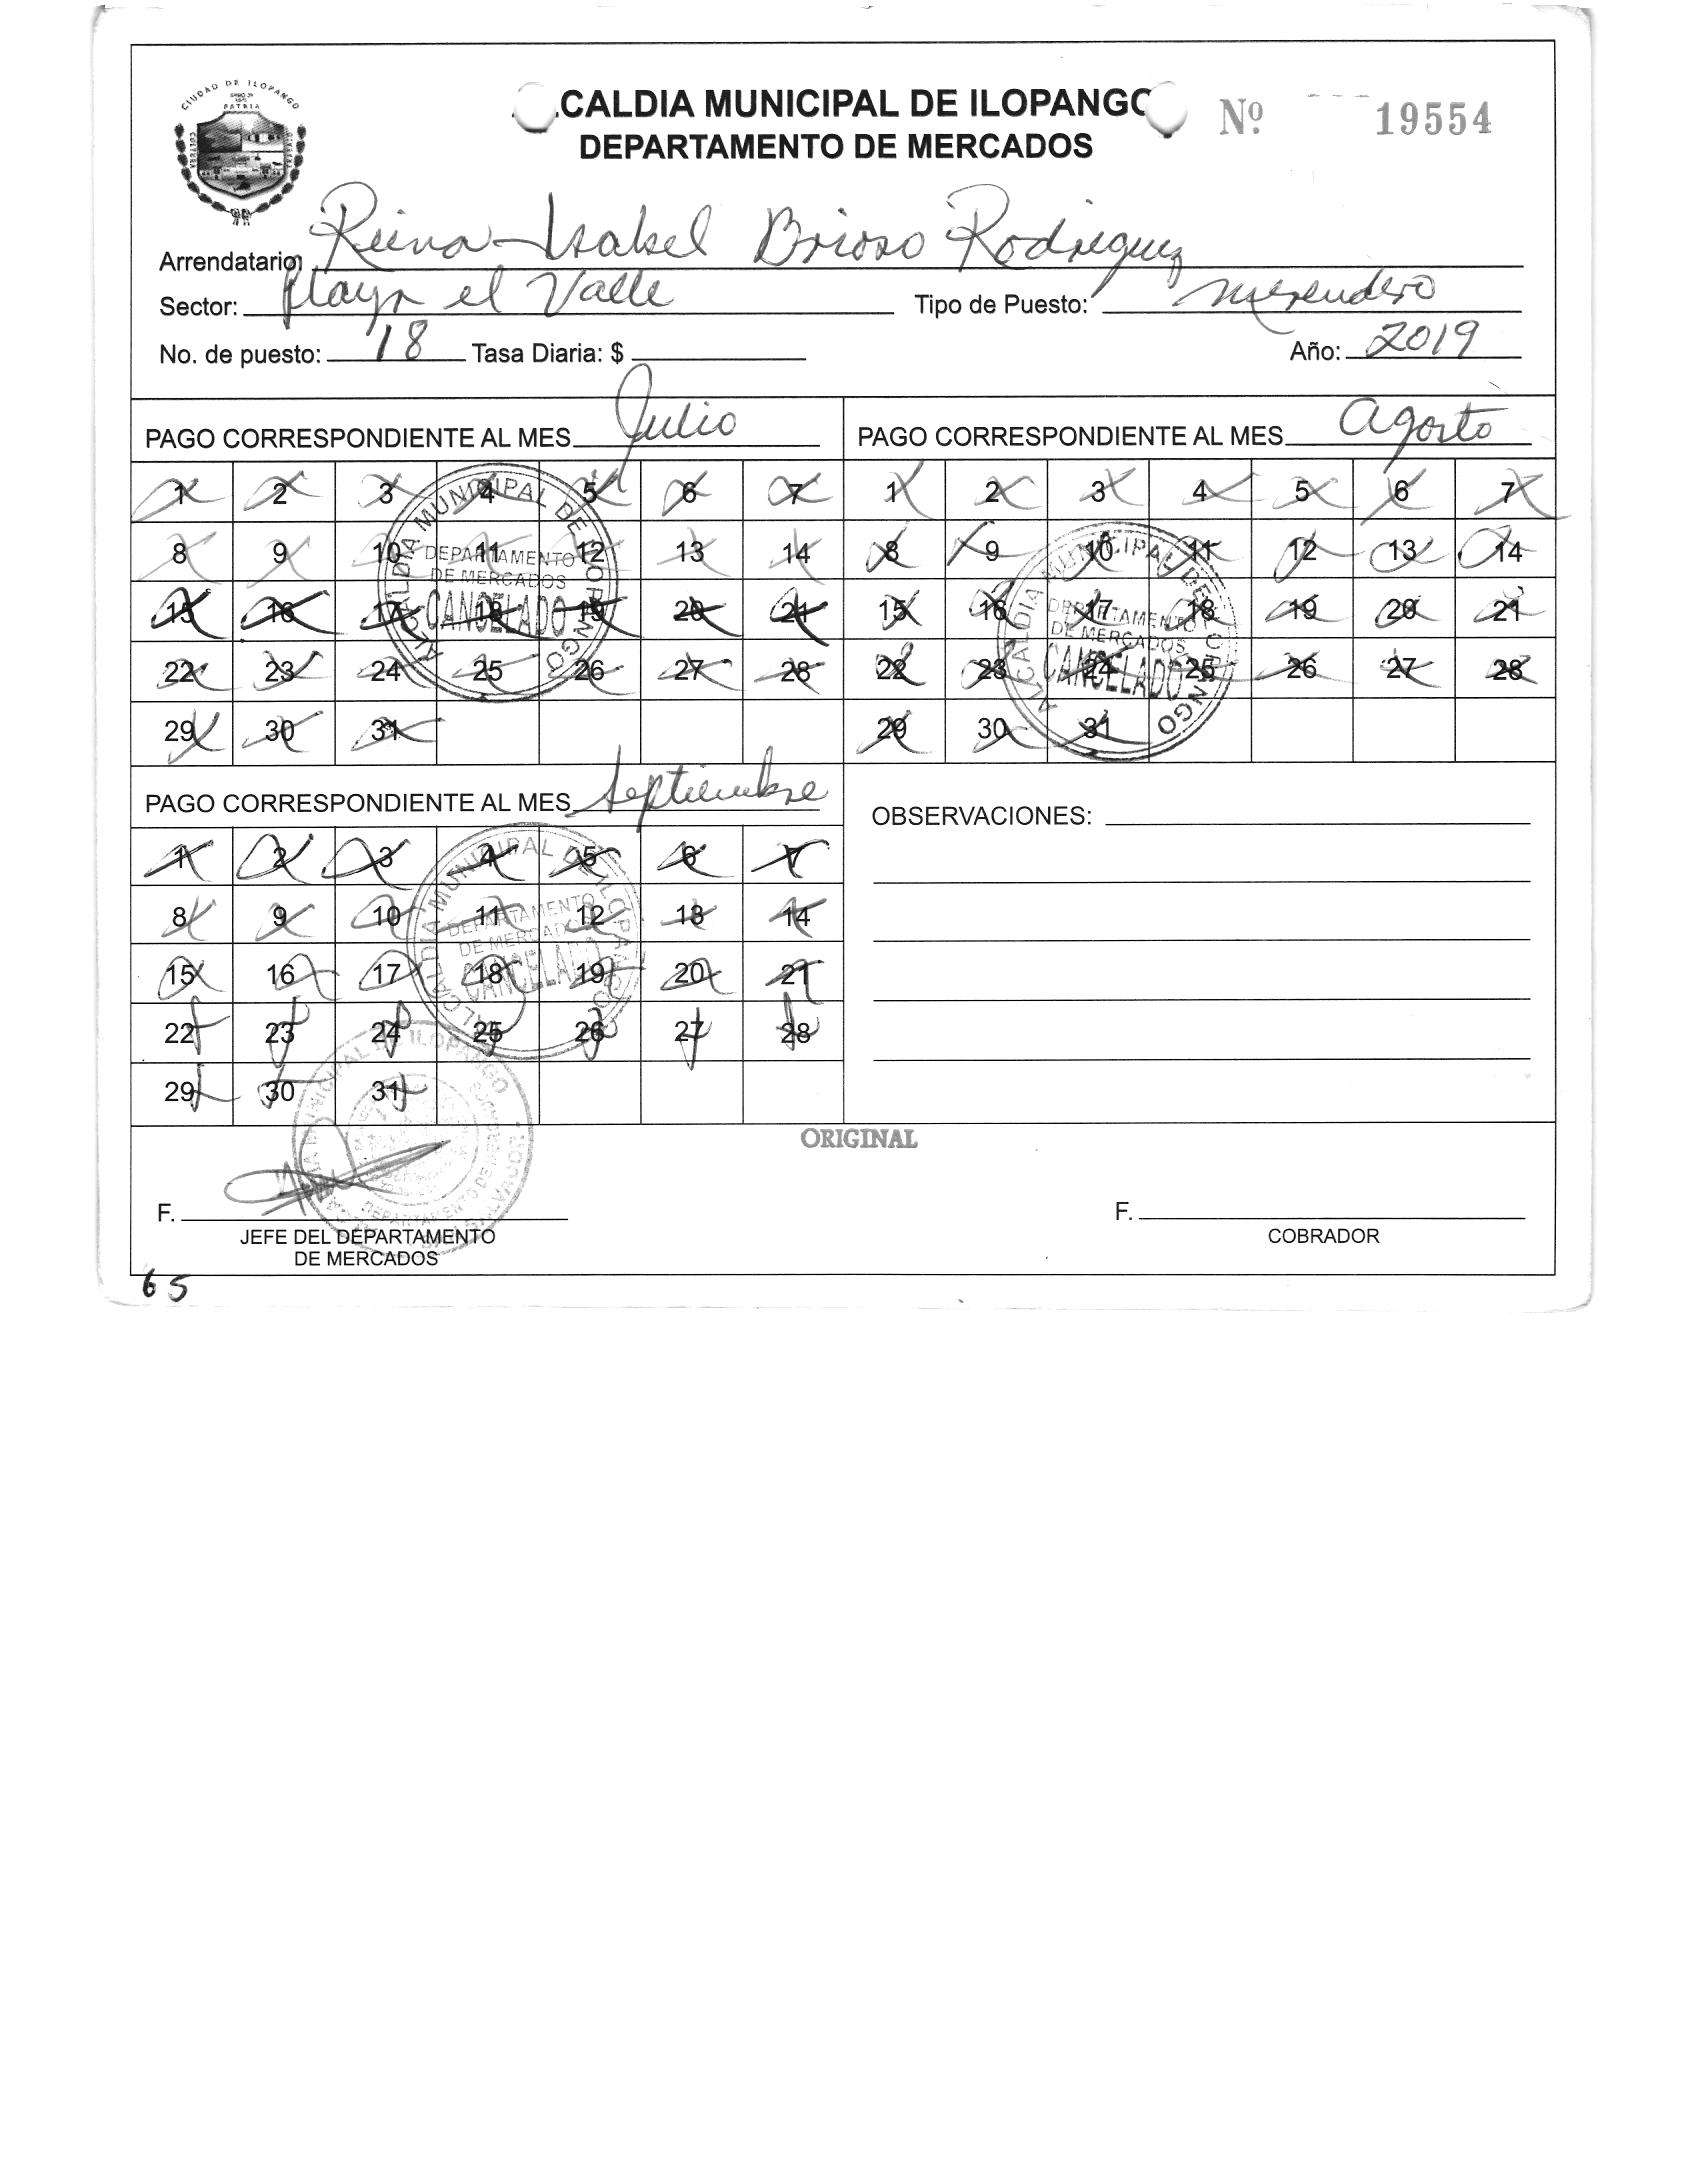 CIUDAD DE ILOPANGO
PATRIA
CALDIA MUNICIPAL DE ILOPANGO
Nº 19554
DEPARTAMENTO DE MERCADOS
Arrendatario: Reina Isabel Brioso Rodriguez
Sector: Playa el Valle Tipo de Puesto: merendero
No. de puesto: 18 Tasa Diaria: $ Año: 2019
PAGO CORRESPONDIENTE AL MES Julio
1 2 3 4 5 6 7
8 9 10 11 12 13 14
15 16 17 18 19 20 21
22 23 24 25 26 27 28
29 30 31
ALCALDIA MUNICIPAL DE ILOPANGO
DEPARTAMENTO
DE MERCADOS
CANCELADO
PAGO CORRESPONDIENTE AL MES Agosto
1 2 3 4 5 6 7
8 9 10 11 12 13 14
15 16 17 18 19 20 21
22 23 24 25 26 27 28
29 30 31
ALCALDIA MUNICIPAL DE ILOPANGO
DEPARTAMENTO
DE MERCADOS
CANCELADO
PAGO CORRESPONDIENTE AL MES Septiembre
1 2 3 4 5 6 7
8 9 10 11 12 13 14
15 16 17 18 19 20 21
22 23 24 25 26 27 28
29 30 31
ALCALDIA MUNICIPAL DE ILOPANGO
DEPARTAMENTO
DE MERCADOS
CANCELADO
OBSERVACIONES:
ORIGINAL
F.
JEFE DEL DEPARTAMENTO
DE MERCADOS
F.
COBRADOR
65